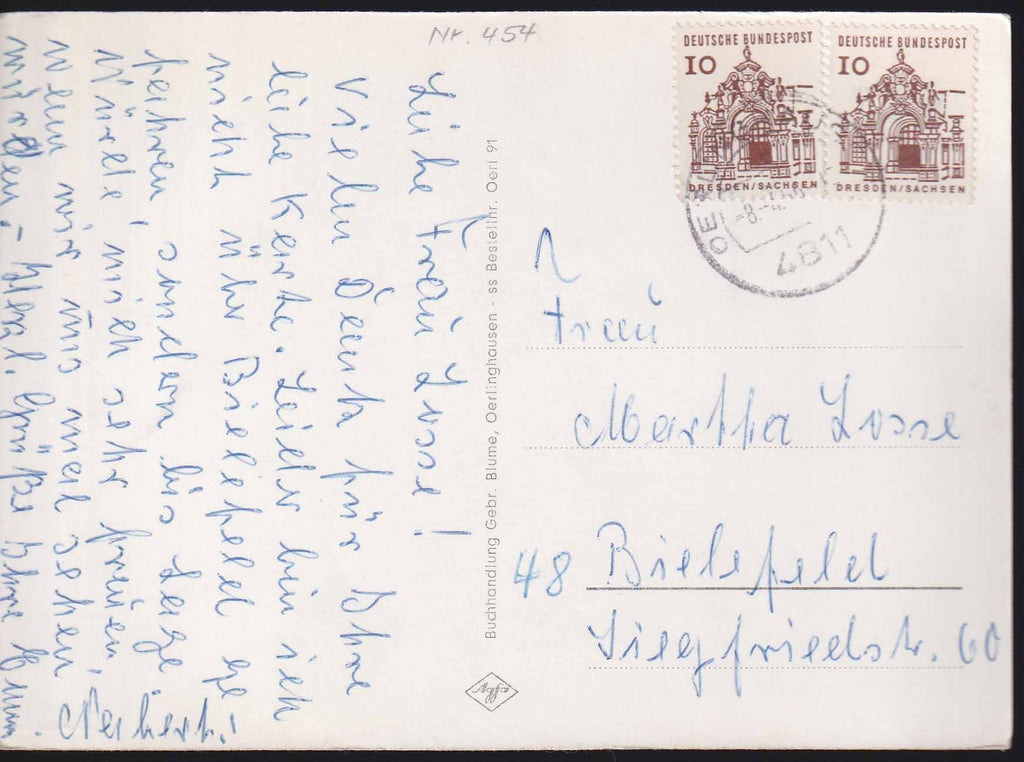 Nr. 454
DEUTSCHE BUNDESPOST
10
DRESDEN/SACHSEN
DEUTSCHE BUNDESPOST
10
DRESDEN/SACHSEN
-8.-4.
4811
Liebe Frau Losse!
Vielen Dank für Ihre
liebe Karte. Leider bin ich
nicht über Bielefeld ge
fahren, sondern bis Lage.
Würde mich sehr freuen,
wenn wir uns mal sehen
würden. - Herzl. Grüße Ihre
Norbert!
Buchhandlung Gebr. Blume, Oerlinghausen - ss Bestellnr. Oerl 91
Agfa
Frau
Martha Losse
48 Bielefeld
Siegfriedstr. 60